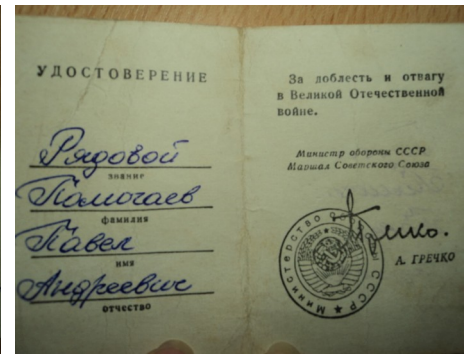 УДОСТОВЕРЕНИЕ
Рядовой
звание
Помогаев
фамилия
Павел
имя
Андреевич
отчество
За доблесть и отвагу
в Великой Отечественной
войне.
Министр обороны СССР
Маршал Советского Союза
А. ГРЕЧКО
Министерство
СССР